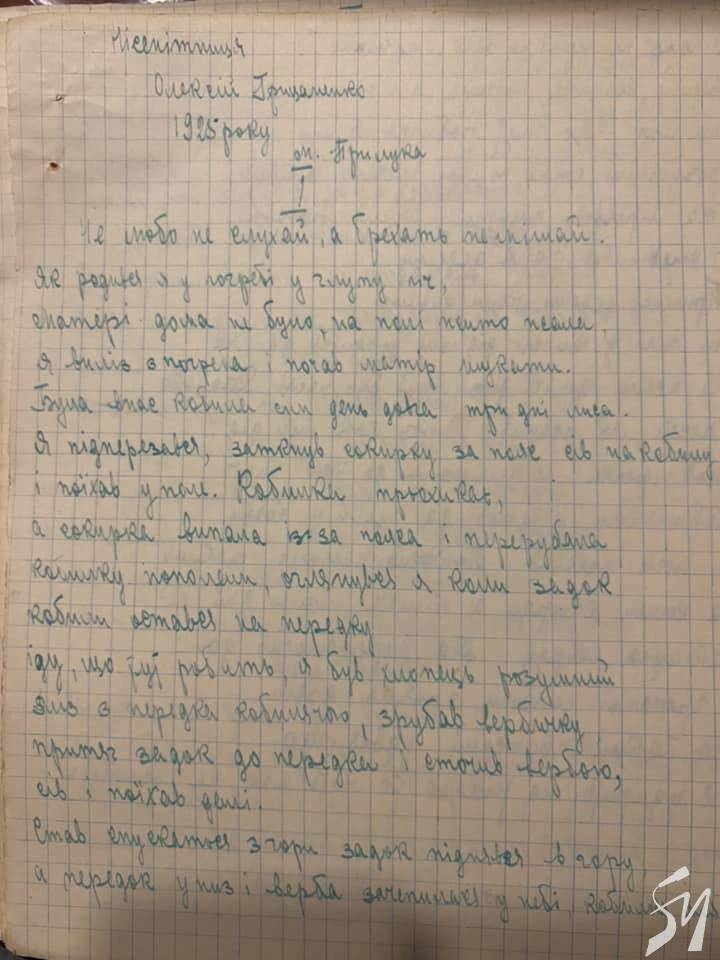 Нісенітниця
Олексій Грицаненко
1925 року
ст. Прилука
I
Не любо не слухай, а брехать не мішай.
Як родився я у погребі у глупу ніч,
Матері дома не було, на полі жито жала,
я виліз з погреба і почав матір шукати.
Була в нас кобила сім день довга три дні лиса.
Я підперезався, заткнув сокирку за пояс сів на кобилу
і поїхав у поле. Кобилка трюхикає,
а сокирка випала із-за пояса і перерубала
кобилку пополам, оглянувся я коли задок
кобили остався на передку
іду, що тут робить, я був хлопець розумний
зліз з передка кобилячого, зрубав вербичку
притяг задок до передка і сточив вербою,
сів і поїхав далі.
Став спускаться з гори задок піднявся в гору
а передок у низ і верба зачепилась у небі, кобилка
SM